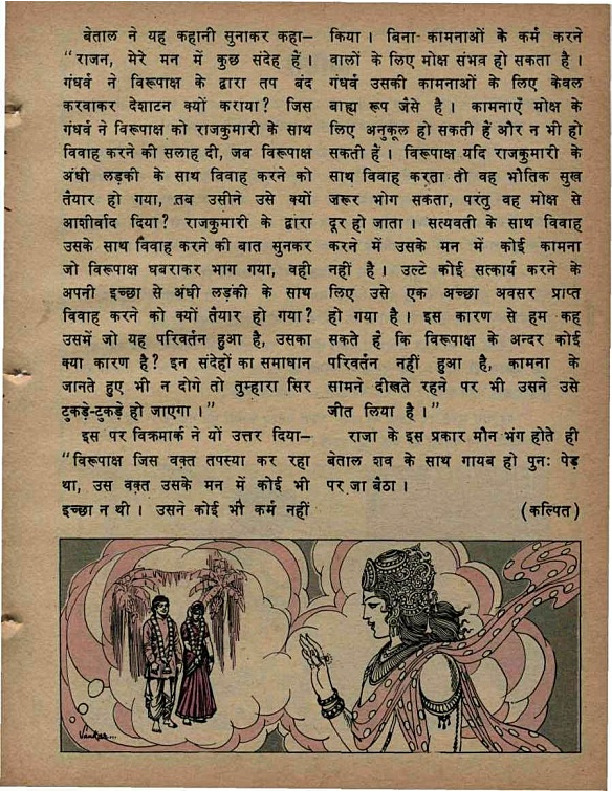 बेताल ने यह कहानी सुनाकर कहा—
"राजन, मेरे मन में कुछ संदेह हैं।
गंधर्व ने विरूपाक्ष के द्वारा तप बंद
करवाकर देशाटन क्यों कराया? जिस
गंधर्व ने विरूपाक्ष को राजकुमारी के साथ
विवाह करने की सलाह दी, जब विरूपाक्ष
अंधी लड़की के साथ विवाह करने को
तैयार हो गया, तब उसीने उसे क्यों
आशीर्वाद दिया? राजकुमारी के द्वारा
उसके साथ विवाह करने की बात सुनकर
जो विरूपाक्ष घबराकर भाग गया, वही
अपनी इच्छा से अंधी लड़की के साथ
विवाह करने को क्यों तैयार हो गया?
उसमें जो यह परिवर्तन हुआ है, उसका
क्या कारण है? इन संदेहों का समाधान
जानते हुए भी न दोगे तो तुम्हारा सिर
टुकड़े-टुकड़े हो जाएगा।"
इस पर विक्रमार्क ने यों उत्तर दिया—
"विरूपाक्ष जिस वक़्त तपस्या कर रहा
था, उस वक़्त उसके मन में कोई भी
इच्छा न थी। उसने कोई भी कर्म नहीं
किया। बिना कामनाओं के कर्म करने
वालों के लिए मोक्ष संभव हो सकता है।
गंधर्व उसकी कामनाओं के लिए केवल
बाह्य रूप जैसे है। कामनाएँ मोक्ष के
लिए अनुकूल हो सकती हैं और न भी हो
सकती हैं। विरूपाक्ष यदि राजकुमारी के
साथ विवाह करता तो वह भौतिक सुख
जरूर भोग सकता, परंतु वह मोक्ष से
दूर हो जाता। सत्यवती के साथ विवाह
करने में उसके मन में कोई कामना
नहीं है। उल्टे कोई सत्कार्य करने के
लिए उसे एक अच्छा अवसर प्राप्त
हो गया है। इस कारण से हम कह
सकते हैं कि विरूपाक्ष के अन्दर कोई
परिवर्तन नहीं हुआ है, कामना के
सामने दीखते रहने पर भी उसने उसे
जीत लिया है।"
राजा के इस प्रकार मौन भंग होते ही
बेताल शव के साथ गायब हो पुनः पेड़
पर जा बैठा।
(कल्पित)